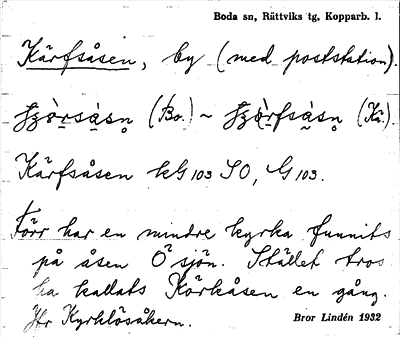 Boda sn, Rättviks tg, Kopparb. l.
Kärfsåsen, by (med poststation).
(Bo.) ~ (Kä.)
Kärfsåsen kG 103 SO, G 103.
Förr har en mindre kyrka funnits
på åsen Ö sjön. Stället tros
ha kallats Körkåsen en gång.
Jfr Kyrklösåkern.
Bror Lindén 1932